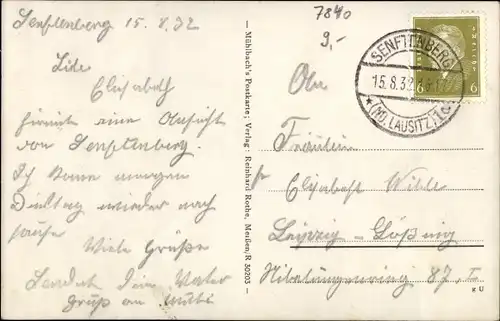 Senftenberg 15.8.32
Libe
Elisabeth
hiermit eine Ansicht
von Senftenberg.
Ich komme morgen
Dinstag wieder nach
hause
Viele Grüße
Sendet Dein Vater
Gruß an Mutti
Mühlbach's Postkarte; Verlag: Reinhard Rothe, Meißen, R 30203
7840
9,-
SENFTENBERG
15.8.32
(ND. LAUSITZ) 1 c
6
6
An
Fräulein
Elisabeth Wilde
Leipzig-Gößnig
Nibelungenring 87, I
K U